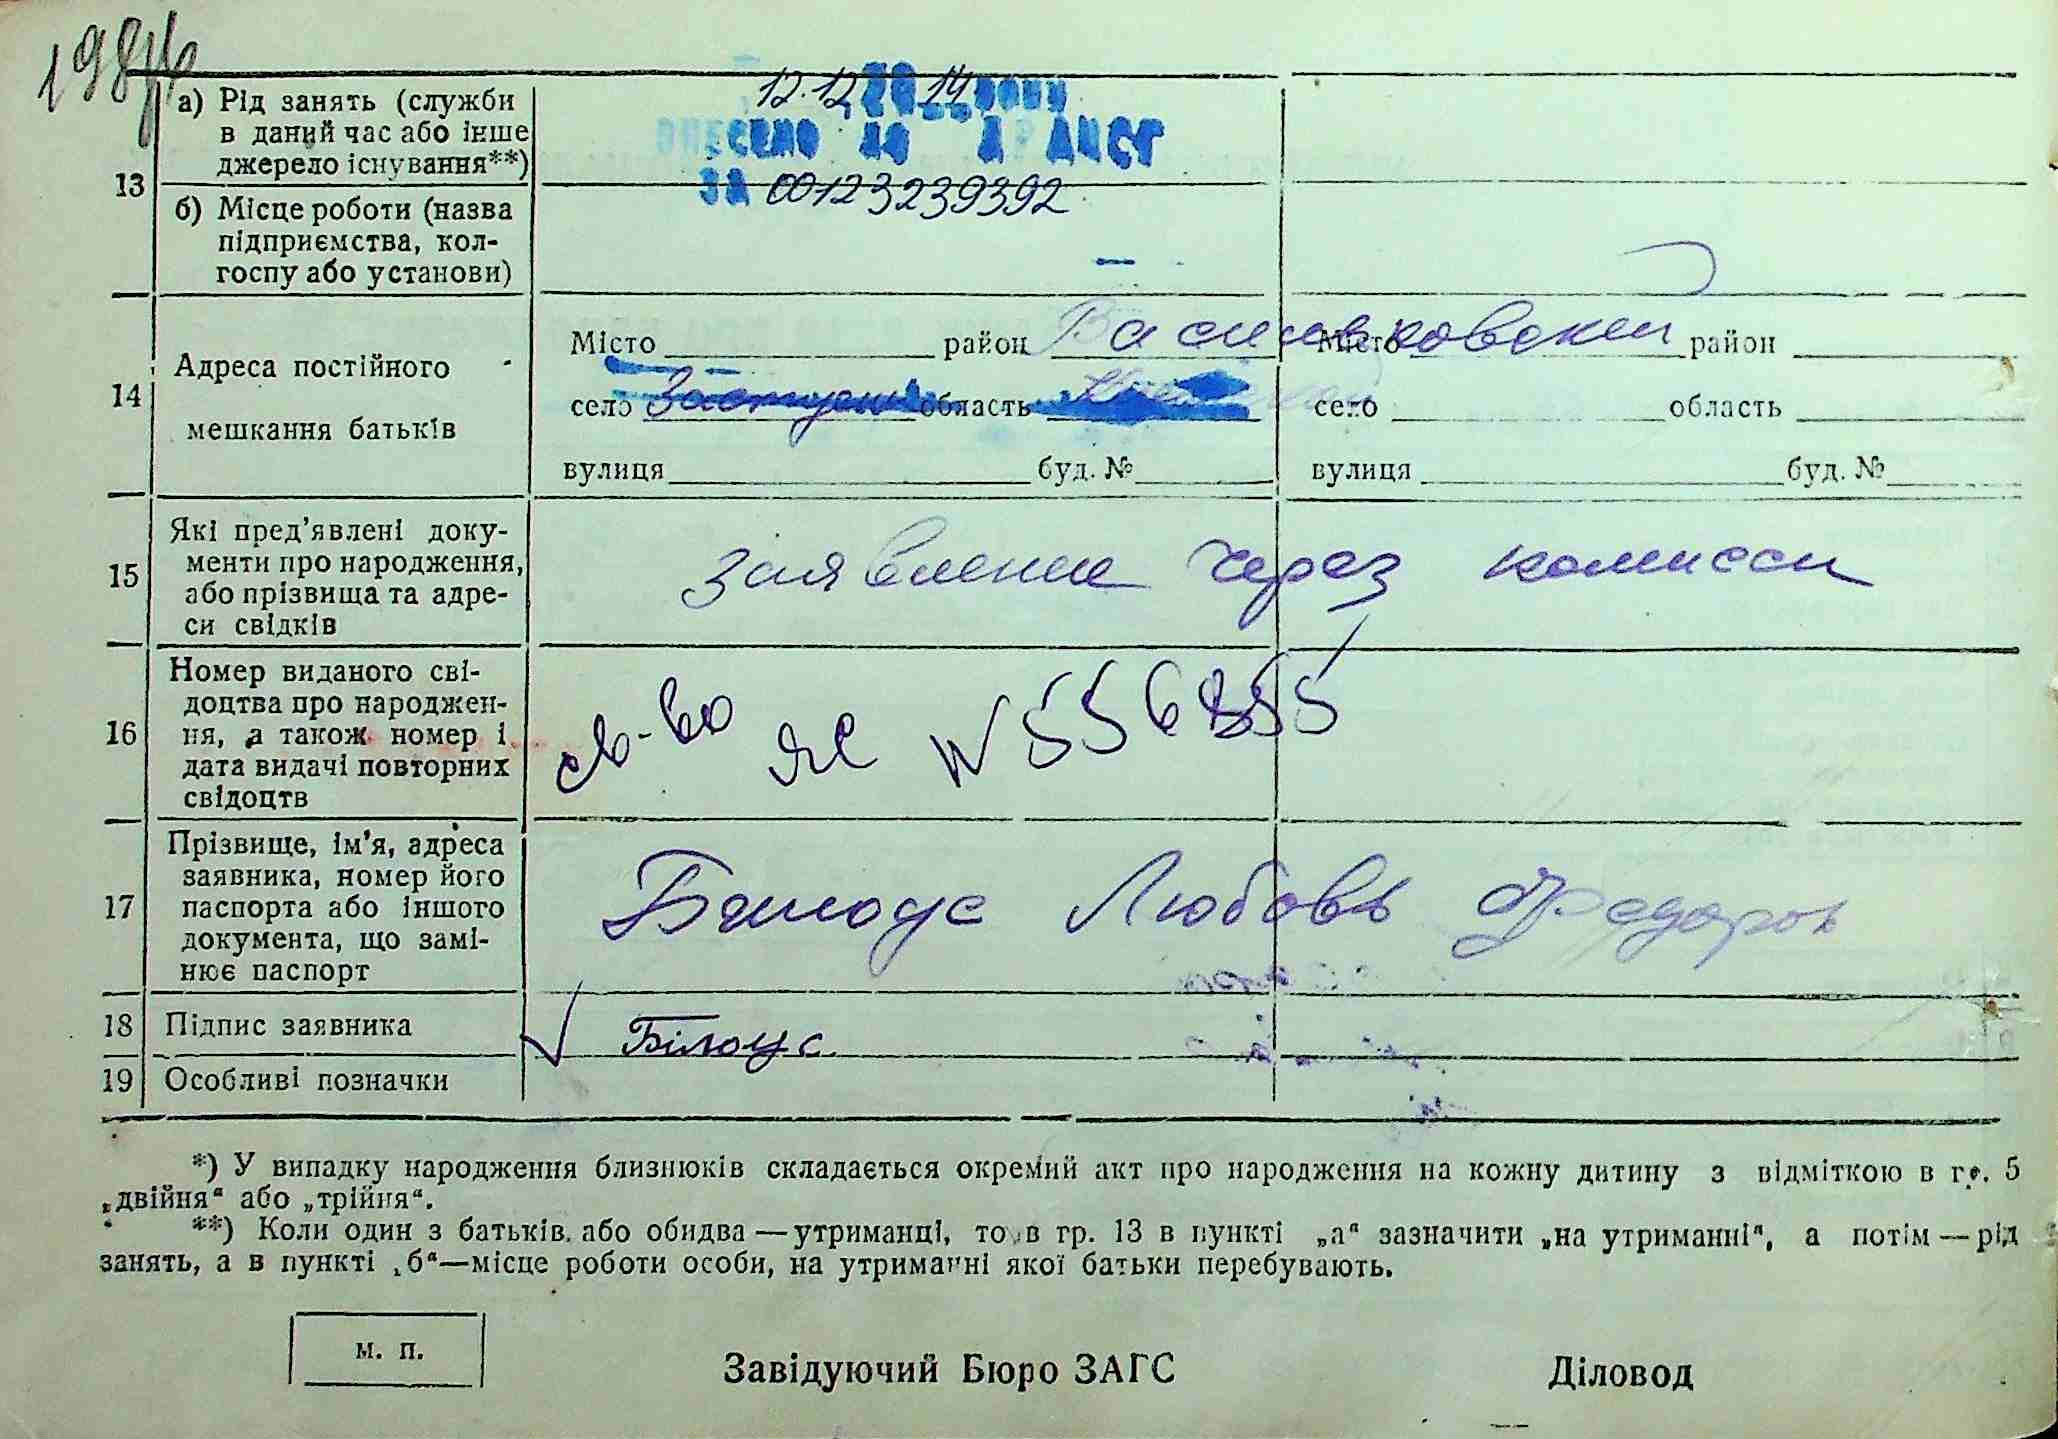 198
а) Рід занять (служби
в даний час або інше
джерело існування**)
12.12 2014 року
ВНЕСЕНО ДО Д ЛИСТ
ЗА 00123239392
13
б) Місце роботи (назва
підприємства, кол-
госпу або установи)
—
14
Адреса постійного
мешкання батьків
Місто район Васильковский
село область
вулиця буд. №
Місто район
село область
вулиця буд. №
15
Які пред'явлені доку-
менти про народження,
або прізвища та адре-
си свідків
заявление через комисси
16
Номер виданого сві-
доцтва про народжен-
ня, а також номер і
дата видачі повторних
свідоцтв
св-во ЯЄ N 556855
17
Прізвище, ім'я, адреса
заявника, номер його
паспорта або іншого
документа, що замі-
нює паспорт
Билоус Любовь Федоров
18 Підпис заявника
Білоус
19 Особливі позначки
*) У випадку народження близнюків складається окремий акт про народження на кожну дитину з відміткою в гр. 5
„двійня“ або „трійня“.
**) Коли один з батьків або обидва — утриманці, то в гр. 13 в пункті „а“ зазначити „на утриманні“, а потім — рід
занять, а в пункті „б“—місце роботи особи, на утриманні якої батьки перебувають.
м. п.
Завідуючий Бюро ЗАГС
Діловод